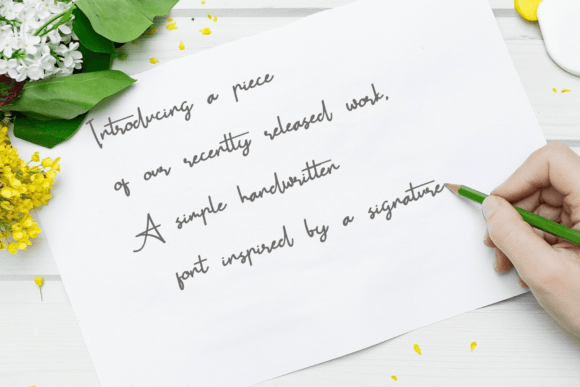 Introducing a piece
of our recently released work,
A simple handwritten
font inspired by a signature